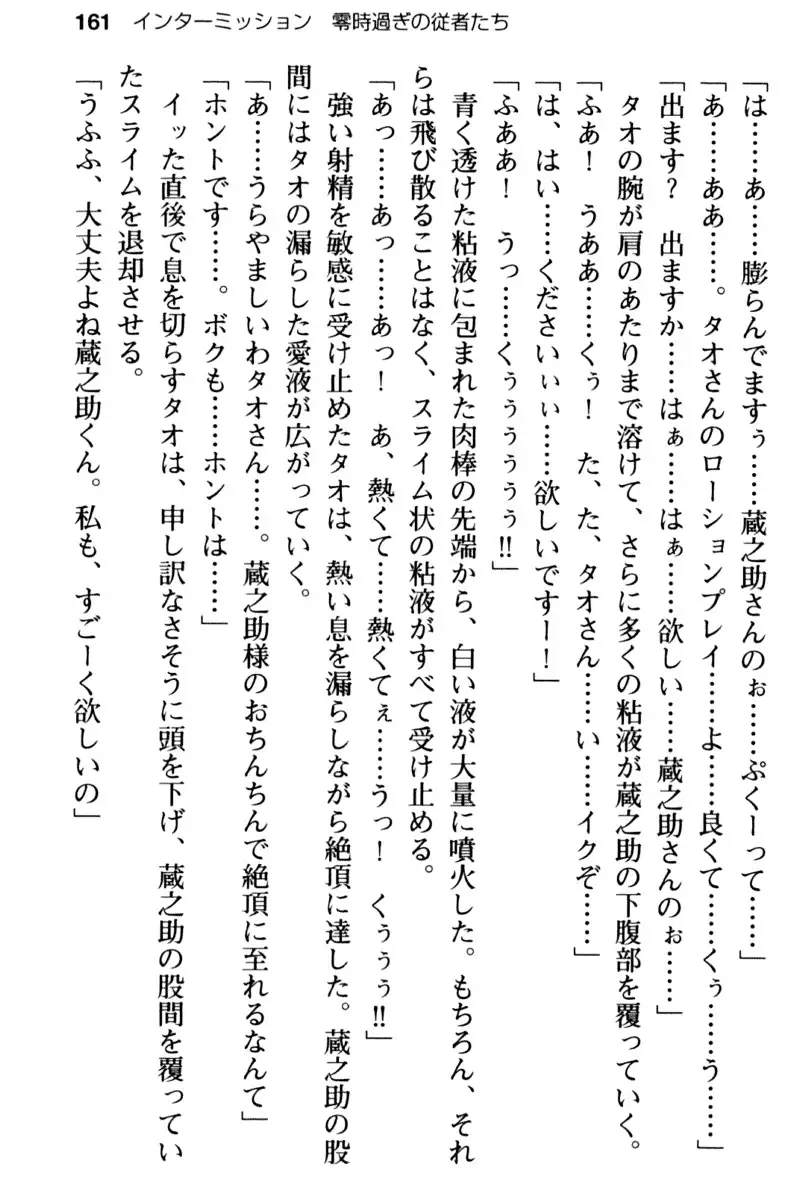 161　インターミッション　零時過ぎの従者たち
「は……あ……膨らんでますぅ……蔵之助さんのぉ……ぷくーって……」
「あ……ああ……。タオさんのローションプレイ……よ……良くて……くぅ……う……」
「出ます？　出ますか……はぁ……はぁ……欲しい……蔵之助さんのぉ……」
　タオの腕が肩のあたりまで溶けて、さらに多くの粘液が蔵之助の下腹部を覆っていく。
「ふぁ！　うああ……くぅ！　た、た、タオさん……い……イクぞ……」
「は、はい……くださいぃぃ……欲しいですー！」
「ふああ！　うっ……くぅぅぅぅぅぅ‼」
　青く透けた粘液に包まれた肉棒の先端から、白い液が大量に噴火した。もちろん、それ
らは飛び散ることはなく、スライム状の粘液がすべて受け止める。
「あっ……あっ……あっ！　あ、熱くて……熱くてぇ……うっ！　くぅぅぅ‼」
　強い射精を敏感に受け止めたタオは、熱い息を漏らしながら絶頂に達した。蔵之助の股
間にはタオの漏らした愛液が広がっていく。
「あ……うらやましいわタオさん……。蔵之助様のおちんちんで絶頂に至れるなんて」
「ホントです……。ボクも……ホントは……」
　イッた直後で息を切らすタオは、申し訳なさそうに頭を下げ、蔵之助の股間を覆ってい
たスライムを退却させる。
「うふふ、大丈夫よね蔵之助くん。私も、すごーく欲しいの」